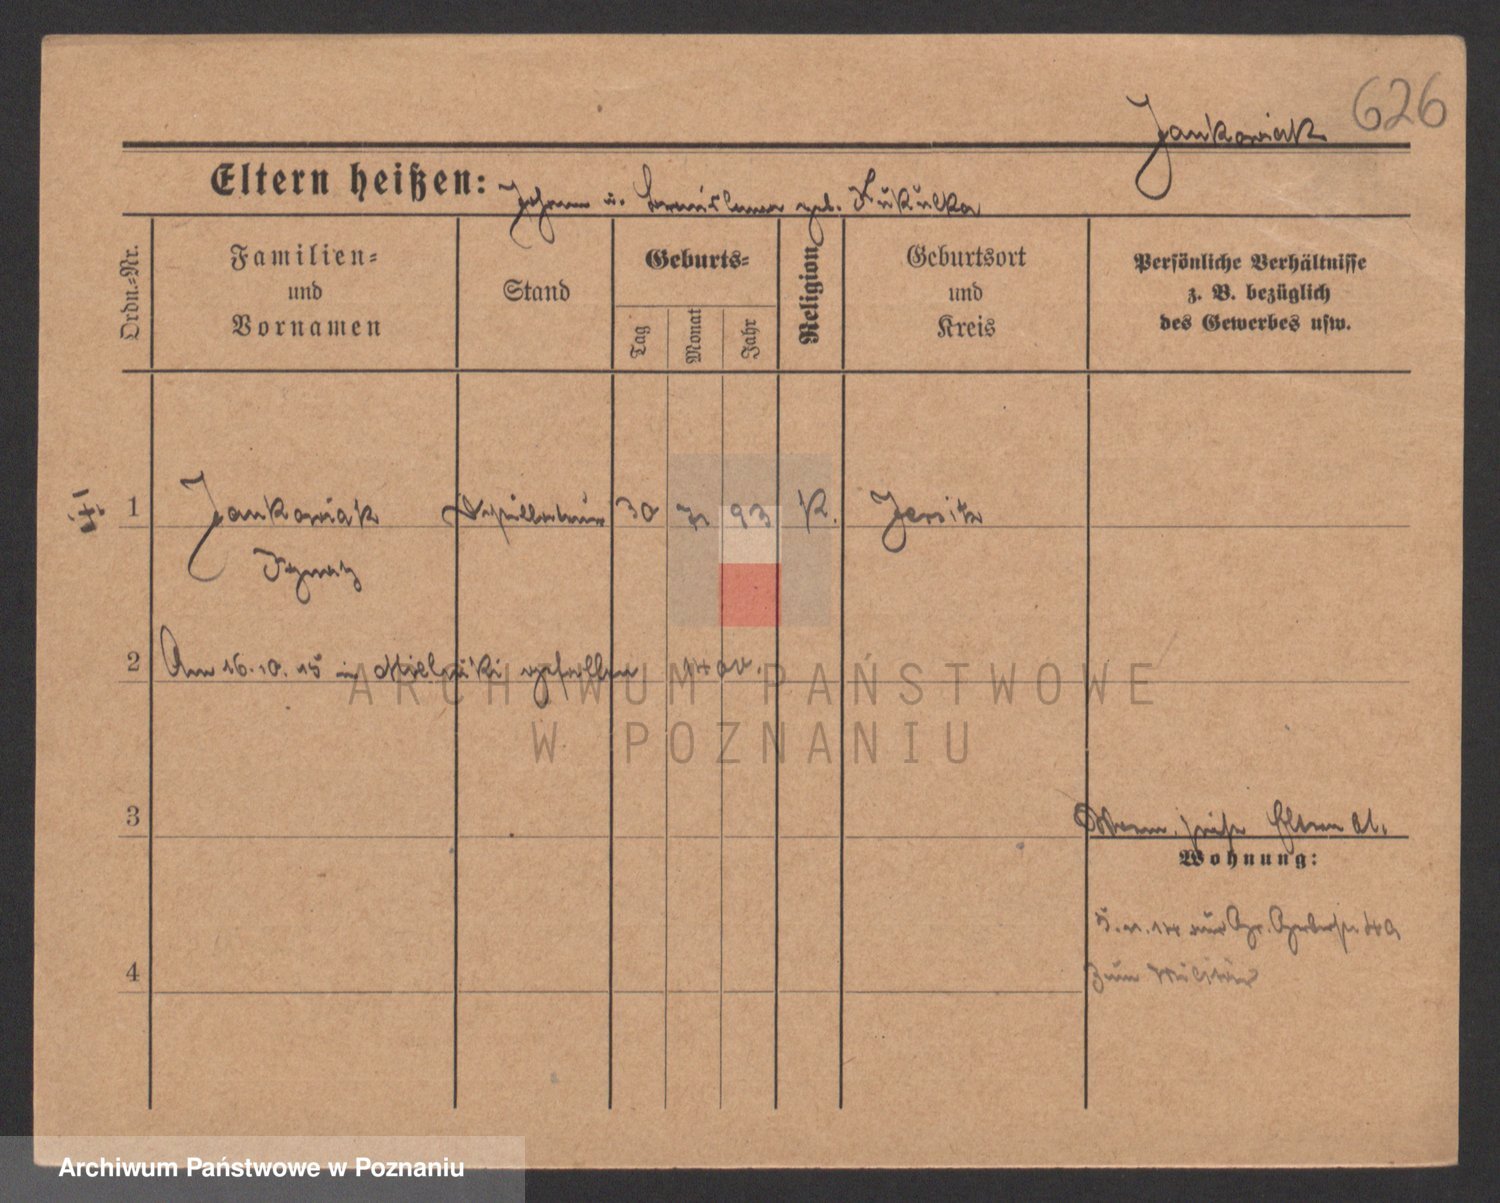 626
Jankowiak
Eltern heißen: Johann u. geb. Kukulka
Ordn.-Nr.
Familien-
und
Vornamen
Stand
Geburts-
Tag
Monat
Jahr
Religion
Geburtsort
und
Kreis
Persönliche Verhältnisse
z. B. bezüglich
des Gewerbes usw.
1 Jankowiak 30 7. 93 K. Jersitz
Ignatz
2 Am 16.10.15 in gefallen
3
Wohnung:
5.11.14 zur 49
4
zum Militär
ARCHIWUM PAŃSTWOWE
W POZNANIU
Archiwum Państwowe w Poznaniu